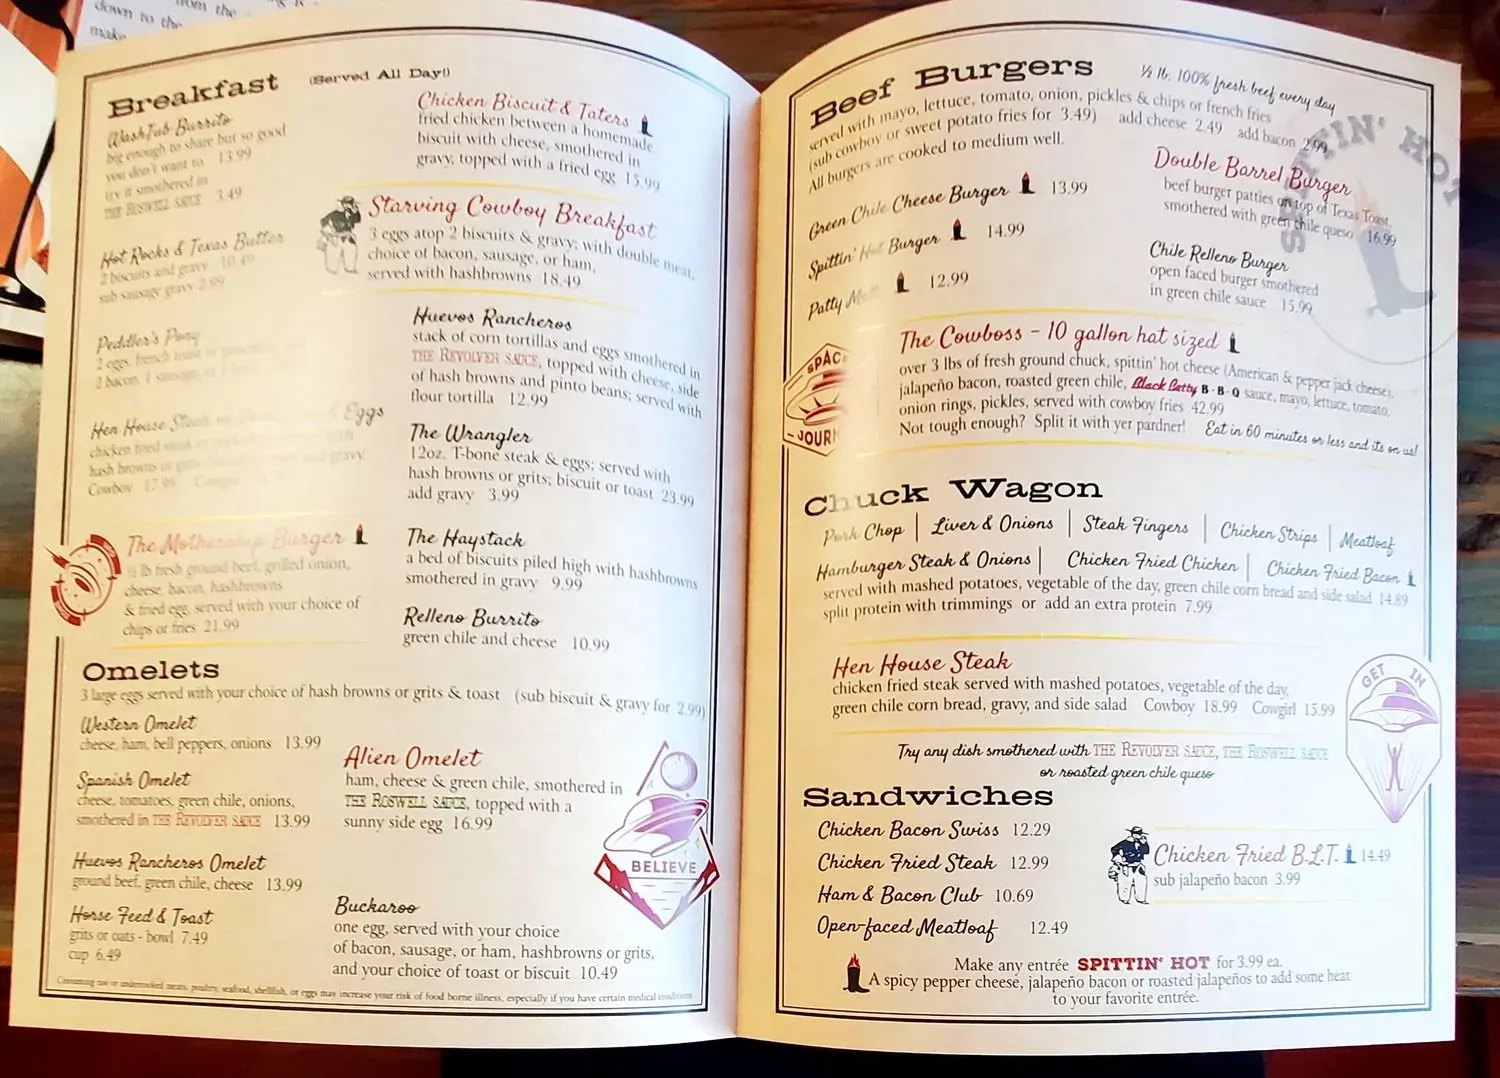 from the
down to the
make
Breakfast (Served All Day!)
WashTub Burrito
big enough to share but so good
you don't want to 13.99
try it smothered in
THE ROSWELL SAUCE 3.49
Hot Rocks & Texas Butter
2 biscuits and gravy 10.49
sub sausage gravy 2.99
Peddler's Pony
2 eggs, french toast or
2 bacon, 1 sausage, or
Hen House Steak & Eggs
chicken fried steak
hash browns or grits gravy
Cowboy 17.99 Cowgirl
The Mothership Burger
½ lb fresh ground beef, grilled onion,
cheese, bacon, hashbrowns
& fried egg, served with your choice of
chips or fries 21.99
Chicken Biscuit & Taters
fried chicken between a homemade
biscuit with cheese, smothered in
gravy, topped with a fried egg 15.99
Starving Cowboy Breakfast
3 eggs atop 2 biscuits & gravy; with double meat,
choice of bacon, sausage, or ham,
served with hashbrowns 18.49
Huevos Rancheros
stack of corn tortillas and eggs smothered in
THE REVOLVER SAUCE, topped with cheese, side
of hash browns and pinto beans; served with
flour tortilla 12.99
The Wrangler
12oz. T-bone steak & eggs; served with
hash browns or grits; biscuit or toast 23.99
add gravy 3.99
The Haystack
a bed of biscuits piled high with hashbrowns
smothered in gravy 9.99
Relleno Burrito
green chile and cheese 10.99
Omelets
3 large eggs served with your choice of hash browns or grits & toast (sub biscuit & gravy for 2.99)
Western Omelet
cheese, ham, bell peppers, onions 13.99
Spanish Omelet
cheese, tomatoes, green chile, onions,
smothered in THE REVOLVER SAUCE 13.99
Huevos Rancheros Omelet
ground beef, green chile, cheese 13.99
Horse Feed & Toast
grits or oats - bowl 7.49
cup 6.49
Alien Omelet
ham, cheese & green chile, smothered in
THE ROSWELL SAUCE, topped with a
sunny side egg 16.99
BELIEVE
Buckaroo
one egg, served with your choice
of bacon, sausage, or ham, hashbrowns or grits,
and your choice of toast or biscuit 10.49
Consuming raw or undercooked meats, poultry, seafood, shellfish, or eggs may increase your risk of food borne illness, especially if you have certain medical conditions.
Beef Burgers ½ lb. 100% fresh beef every day
served with mayo, lettuce, tomato, onion, pickles & chips or french fries
(sub cowboy or sweet potato fries for 3.49) add cheese 2.49 add bacon 2.99
All burgers are cooked to medium well.
Green Chile Cheese Burger 13.99
Spittin' Hot Burger 14.99
Patty Melt 12.99
Double Barrel Burger
beef burger patties on top of Texas Toast,
smothered with green chile queso 16.99
Chile Relleno Burger
open faced burger smothered
in green chile sauce 15.99
The Cowboss - 10 gallon hat sized
over 3 lbs of fresh ground chuck, spittin' hot cheese (American & pepper jack cheese),
jalapeño bacon, roasted green chile, Black Betty B-B-Q sauce, mayo, lettuce, tomato,
onion rings, pickles, served with cowboy fries 42.99
Not tough enough? Split it with yer pardner! Eat in 60 minutes or less and its on us!
SPACE
JOURN
Chuck Wagon
Pork Chop | Liver & Onions | Steak Fingers | Chicken Strips | Meatloaf
Hamburger Steak & Onions | Chicken Fried Chicken | Chicken Fried Bacon
served with mashed potatoes, vegetable of the day, green chile corn bread and side salad 14.89
split protein with trimmings or add an extra protein 7.99
Hen House Steak
chicken fried steak served with mashed potatoes, vegetable of the day,
green chile corn bread, gravy, and side salad Cowboy 18.99 Cowgirl 15.99
GET IN
Try any dish smothered with THE REVOLVER SAUCE, THE ROSWELL SAUCE
or roasted green chile queso
Sandwiches
Chicken Bacon Swiss 12.29
Chicken Fried Steak 12.99
Ham & Bacon Club 10.69
Open-faced Meatloaf 12.49
Chicken Fried B.L.T. 14.49
sub jalapeño bacon 3.99
Make any entrée SPITTIN' HOT for 3.99 ea.
A spicy pepper cheese, jalapeño bacon or roasted jalapeños to add some heat
to your favorite entrée.